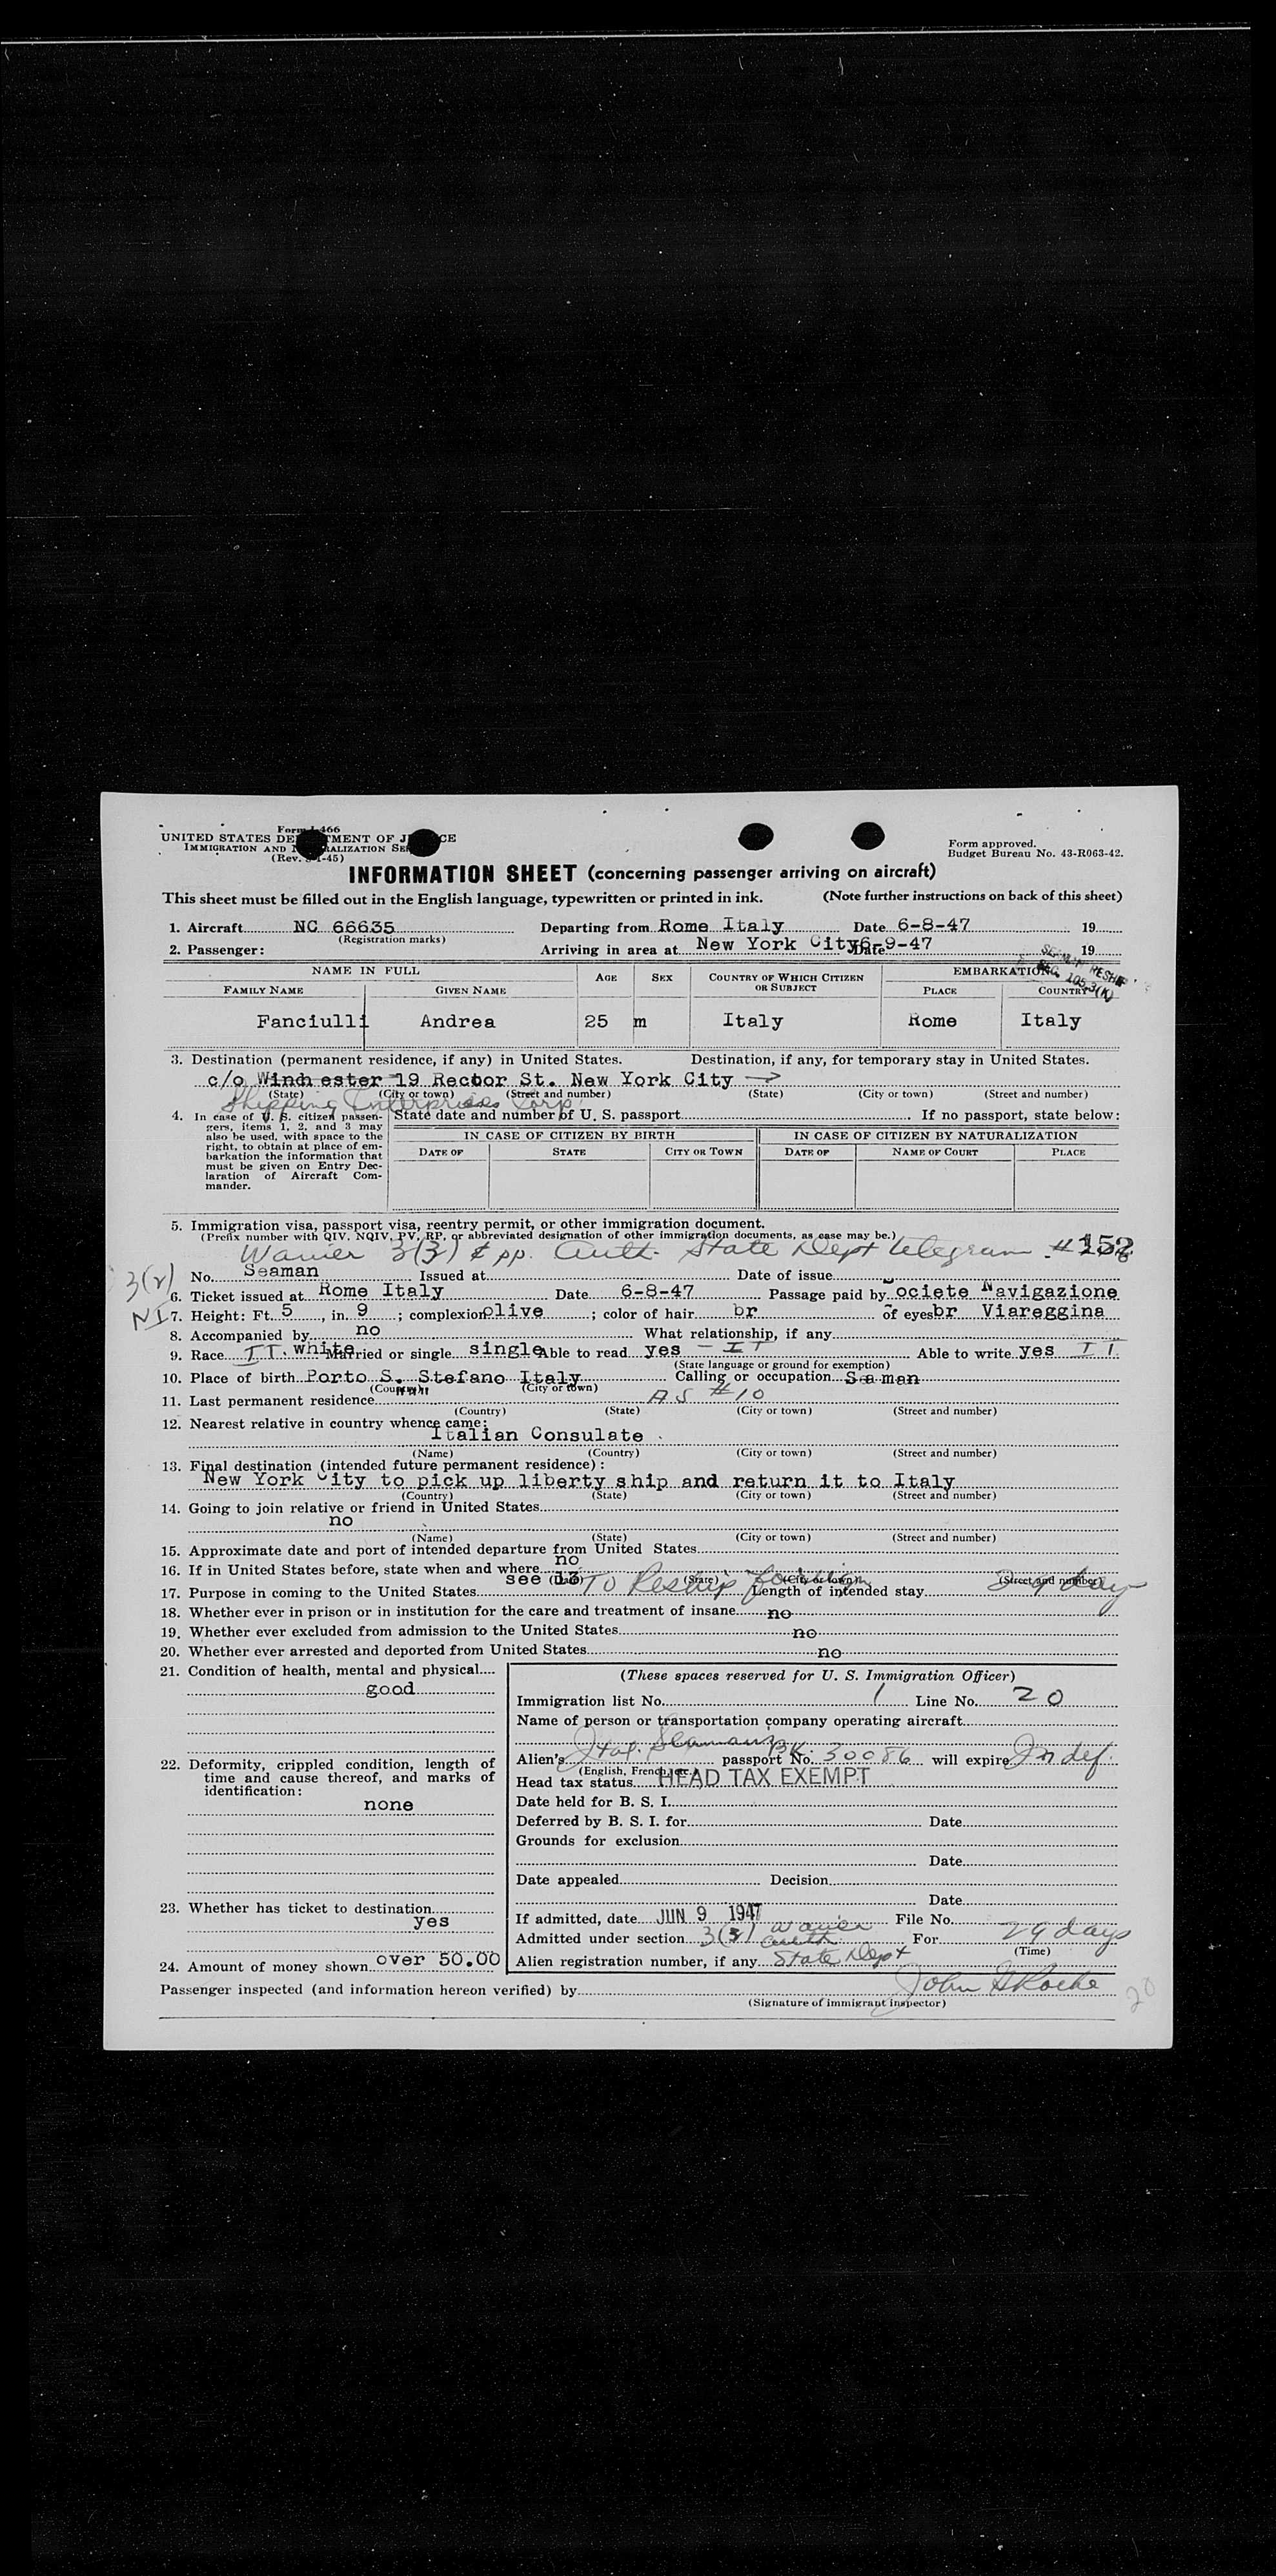 Form I-466
UNITED STATES DEPARTMENT OF JUSTICE
IMMIGRATION AND NATURALIZATION SERVICE
(Rev. -45)
Form approved.
Budget Bureau No. 43-R063-42.
INFORMATION SHEET (concerning passenger arriving on aircraft)
This sheet must be filled out in the English language, typewritten or printed in ink. (Note further instructions on back of this sheet)
1. Aircraft NC 66635 Departing from Rome Italy Date 6-8-47 19
(Registration marks)
2. Passenger: Arriving in area at New York City Date 6-9-47 19
SEAMAN RESHIP
SEC. 105.3(K)
NAME IN FULL AGE SEX COUNTRY OF WHICH CITIZEN OR SUBJECT EMBARKATION
FAMILY NAME GIVEN NAME PLACE COUNTRY
Fanciulli Andrea 25 m Italy Rome Italy
3. Destination (permanent residence, if any) in United States. Destination, if any, for temporary stay in United States.
c/o Winchester 19 Rector St. New York City →
(State) (City or town) (Street and number) (State) (City or town) (Street and number)
Shipping Enterprises Corp
4. In case of U. S. citizen passengers, items 1, 2, and 3 may also be used, with space to the right, to obtain at place of embarkation the information that must be given on Entry Declaration of Aircraft Commander.
State date and number of U. S. passport If no passport, state below:
IN CASE OF CITIZEN BY BIRTH IN CASE OF CITIZEN BY NATURALIZATION
DATE OF STATE CITY OR TOWN DATE OF NAME OF COURT PLACE
5. Immigration visa, passport visa, reentry permit, or other immigration document.
(Prefix number with QIV, NQIV, PV, RP, or abbreviated designation of other immigration documents, as case may be.)
Waiver 3(3) & pp. Auth. State Dept telegram #
No. Seaman Issued at Date of issue
6. Ticket issued at Rome Italy Date 6-8-47 Passage paid by Societe Navigazione
NI 7. Height: Ft. 5, in. 9; complexion olive; color of hair br of eyes br Viareggina
8. Accompanied by no What relationship, if any
9. Race IT. white Married or single single Able to read yes - IT Able to write yes IT
(State language or ground for exemption)
10. Place of birth Porto S. Stefano Italy Calling or occupation Seaman
(Country) (City or town)
11. Last permanent residence AS #10
(Country) (State) (City or town) (Street and number)
12. Nearest relative in country whence came:
Italian Consulate
(Name) (Country) (City or town) (Street and number)
13. Final destination (intended future permanent residence):
New York City to pick up liberty ship and return it to Italy
(Country) (State) (City or town) (Street and number)
14. Going to join relative or friend in United States
no
(Name) (State) (City or town) (Street and number)
15. Approximate date and port of intended departure from United States
16. If in United States before, state when and where no
(Date) (State) (City or town) (Street and number)
17. Purpose in coming to the United States see 13 To Reship foreign Length of intended stay days
18. Whether ever in prison or in institution for the care and treatment of insane no
19. Whether ever excluded from admission to the United States no
20. Whether ever arrested and deported from United States no
21. Condition of health, mental and physical
good
22. Deformity, crippled condition, length of time and cause thereof, and marks of identification:
none
23. Whether has ticket to destination
yes
24. Amount of money shown over 50.00
(These spaces reserved for U. S. Immigration Officer)
Immigration list No. 1 Line No. 20
Name of person or transportation company operating aircraft
Alien's Ital. Seamans BK. passport No. 30086 will expire Indef.
(English, French, etc.)
Head tax status HEAD TAX EXEMPT
Date held for B. S. I.
Deferred by B. S. I. for Date
Grounds for exclusion
Date
Date appealed Decision
Date
If admitted, date JUN 9 1947 File No.
Admitted under section 3(5) waiver auth State Dept For 29 days
(Time)
Alien registration number, if any
Passenger inspected (and information hereon verified) by John G Roche
(Signature of immigrant inspector)
20